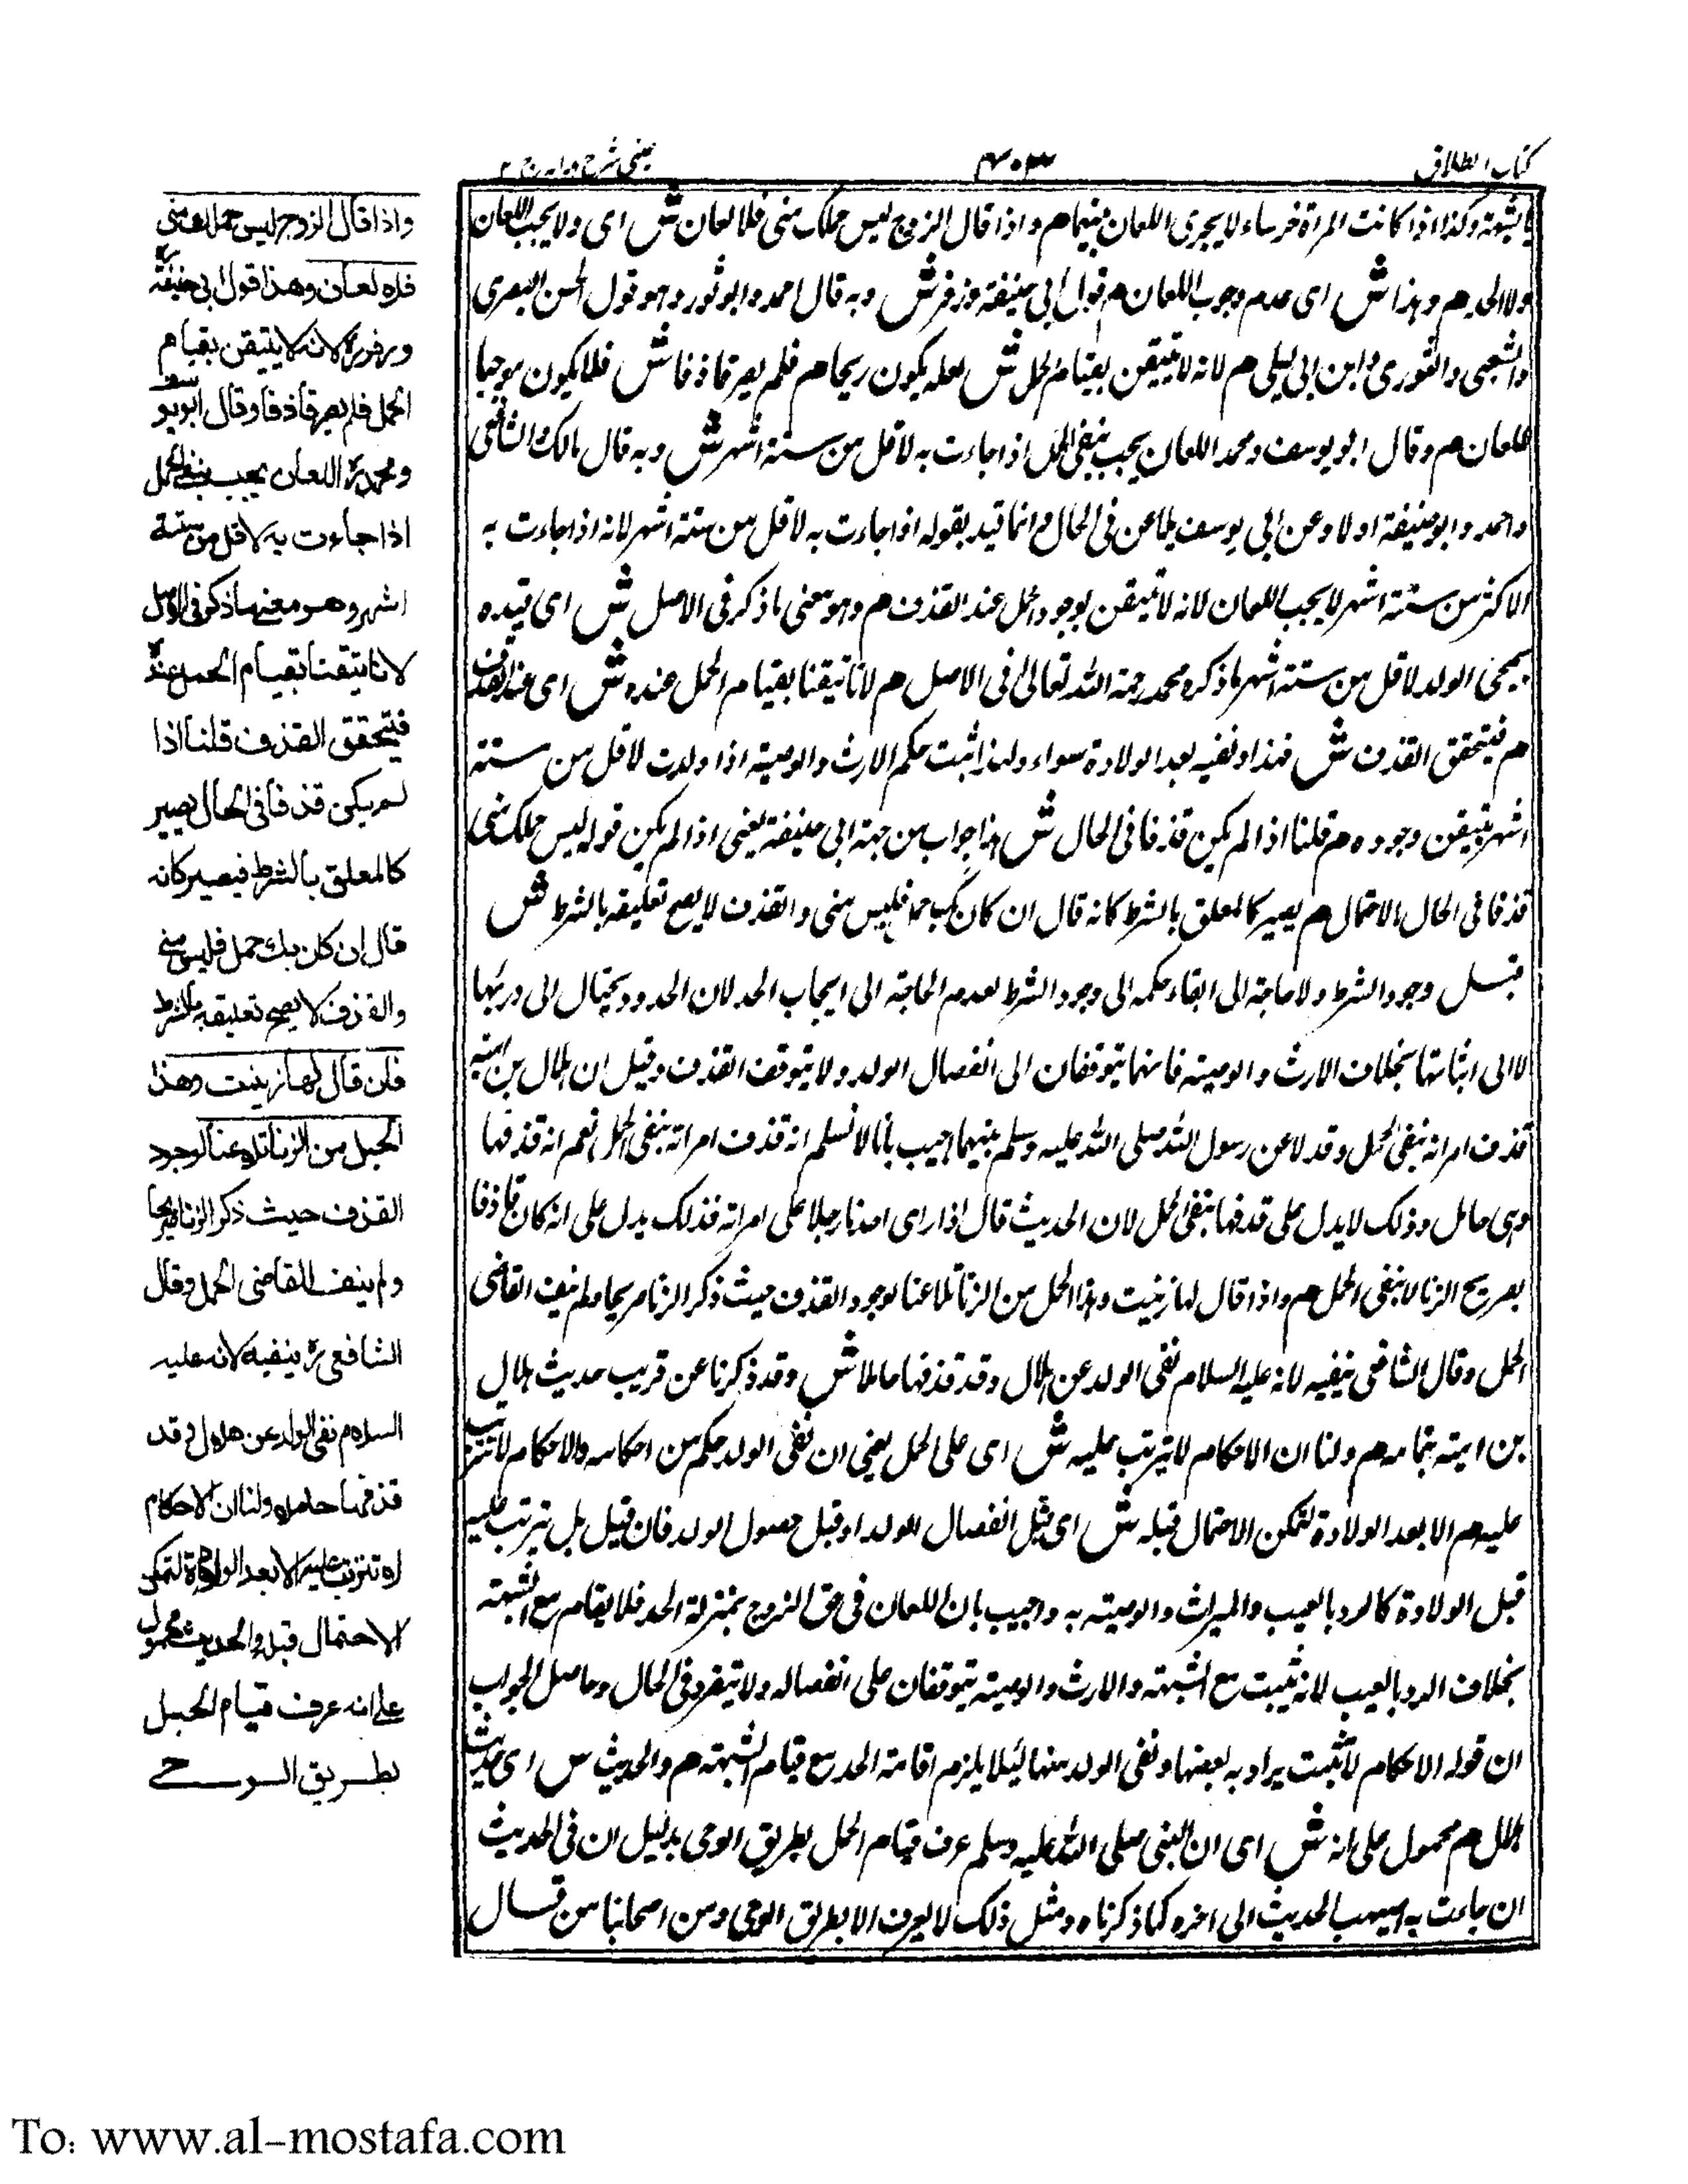 كتاب الطلاق
٤٠٣
عينى شرح هدايه ج ٢
بالشبهة وكذا اذا كانت المراة خرساء لا يجرى اللعان بينهما هم واذا قال الزوج ليس حملك منى فلا لعان ش اى ولا يجب اللعان
ولا الحد هم وهذا ش اى عدم وجوب اللعان هم قول ابى حنيفة وزفر ش وبه قال احمد وابو ثور وهو قول الحسن البصرى
والشعبى والثورى وابن ابى ليلى هم لانه لا يتيقن بقيام الحمل ش لعله يكون ريحا هم فلم يصر قاذفا ش فلا يكون موجبا
للعان هم وقال ابو يوسف ومحمد اللعان يجب بنفى الحمل اذا جاءت به لاقل من ستة اشهر ش وبه قال مالك والشافعى
واحمد وابو حنيفة اولا وعن ابى يوسف يلاعن فى الحال وانما قيد بقوله اذا جاءت به لاقل من ستة اشهر لانه اذا جاءت به
لاكثر من ستة اشهر لا يجب اللعان لانه لا تيقن بوجود الحمل عند القذف هم وهو معنى ما ذكر فى الاصل ش اى قيده
بمجئ الولد لاقل من ستة اشهر ما ذكره محمد رحمة الله تعالى فى الاصل هم لانا تيقنا بقيام الحمل عنده ش اى عند القذف
هم فيتحقق القذف ش فهذا ونفيه بعد الولادة سواء ولهذا ثبت حكم الارث والوصية اذا ولدت لاقل من ستة
اشهر بتيقن وجوده هم قلنا اذا لم يكن قذفا فى الحال ش هذا جواب من جهة ابى حنيفة يعنى اذا لم يكن قوله ليس حملك منى
قذفا فى الحال للاحتمال هم يصير كالمعلق بالشرط كانه قال ان كان بك حمل فليس منى والقذف لا يصح تعليقه بالشرط ش
قبل وجود الشرط ولا حاجة الى ابقاء حكمه الى وجود الشرط لعدم الحاجة الى ايجاب الحد لان الحدود يحتال الى درئها
لا الى اثباتها بخلاف الارث والوصية فانهما يتوقفان الى انفصال الولد ولا يتوقف القذف وقيل ان هلال بن امية
قذف امراته بنفى الحمل وقد لاعن رسول الله صلى الله عليه وسلم بينهما اجيب بانا لا نسلم انه قذف امراته بنفى الحمل نعم انه قذفها
وهى حامل وذلك لا يدل على قذفها بنفى الحمل لان الحديث قال اذا راى احدنا رجلا على امراته فذلك يدل على انه كان قاذفا
بصريح الزنا لا بنفى الحمل هم واذا قال لها زنيت وهذا الحمل من الزنا تلاعنا لوجود القذف حيث ذكر الزنا صريحا ولم ينف القاضى
الحمل وقال الشافعى ينفيه لانه عليه السلام نفى الولد عن هلال وقد قذفها حاملا ش وقد ذكرنا عن قريب حديث هلال
بن امية بتمامه هم ولنا ان الاحكام لا يترتب عليه ش اى على الحمل يعنى ان نفى الولد حكم من احكامه والاحكام لا تترتب
عليه هم الا بعد الولادة لتمكن الاحتمال قبله ش اى قبل انفصال الولد او قبل حصول الولد فان قيل بل يترتب عليه
قبل الولادة كالرد بالعيب والميراث والوصية به واجيب بان اللعان فى حق الزوج بمنزلة الحد فلا يقام مع الشبهة
بخلاف الرد بالعيب لانه يثبت مع الشبهة والارث والوصية يتوقفان على انفصاله ولا يتقرر فى الحال وحاصل الجواب
ان قوله الاحكام لا تثبت يراد به بعضها ونفى الولد منها ليلا يلزم اقامة الحد مع قيام الشبهة هم والحديث ش اى حديث
هلال هم محمول على انه ش اى ان النبى صلى الله عليه وسلم عرف قيام الحمل بطريق الوحى بدليل ان فى الحديث
ان جاءت به اصيهب الحديث الى اخره كما ذكرناه ومثل ذلك لا يعرف الا بطريق الوحى ومن اصحابنا من قال
واذا قال الزوج ليس حملك منى
فلا لعان وهذا قول ابى حنيفة
وزفر لانه لا يتيقن بقيام
الحمل فلم يصر قاذفا وقال ابو يوسف
ومحمد اللعان يجب بنفى الحمل
اذا جاءت به لاقل من ستة
اشهر وهو معنى ما ذكر فى الاصل
لانا تيقنا بقيام الحمل عنده
فيتحقق القذف قلنا اذا
لم يكن قذفا فى الحال يصير
كالمعلق بالشرط فيصير كانه
قال ان كان بك حمل فليس منى
والقذف لا يصح تعليقه بالشرط
فان قال لها زنيت وهذا
الحبل من الزنا تلاعنا لوجود
القذف حيث ذكر الزنا صريحا
ولم ينف القاضى الحمل وقال
الشافعى ينفيه لانه عليه
السلام نفى الولد عن هلال وقد
قذفها حاملا ولنا ان الاحكام
لا تترتب عليه الا بعد الولادة لتمكن
الاحتمال قبله والحديث محمول
على انه عرف قيام الحبل
بطريق الوحى
To: www.al-mostafa.com